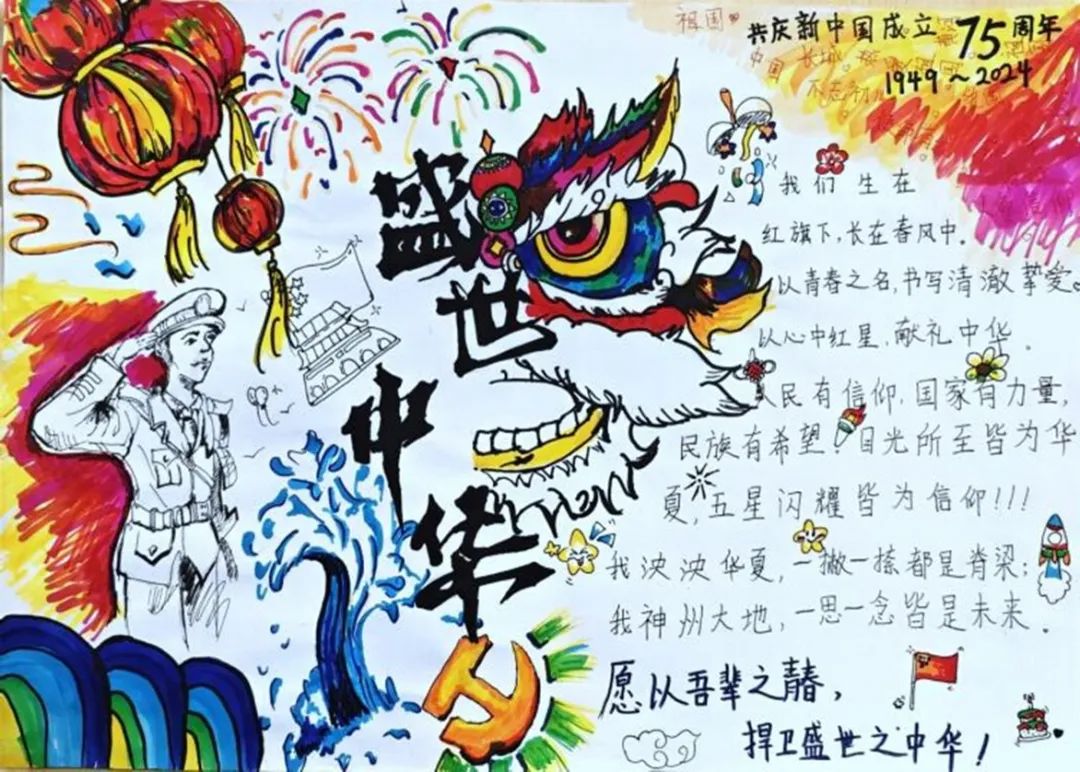 祖国
共庆新中国成立75周年
1949~2024
中国
长城
不忘初
盛世中华
我们生在
红旗下,长在春风中.
以青春之名,书写清澈挚爱。
以心中红星,献礼中华.
人民有信仰,国家有力量,
民族有希望!目光所至皆为华
夏,五星闪耀皆为信仰!!!
我泱泱华夏,一撇一捺都是脊梁;
我神州大地,一思一念皆是未来.
愿以吾辈之青春,
捍卫盛世之中华!